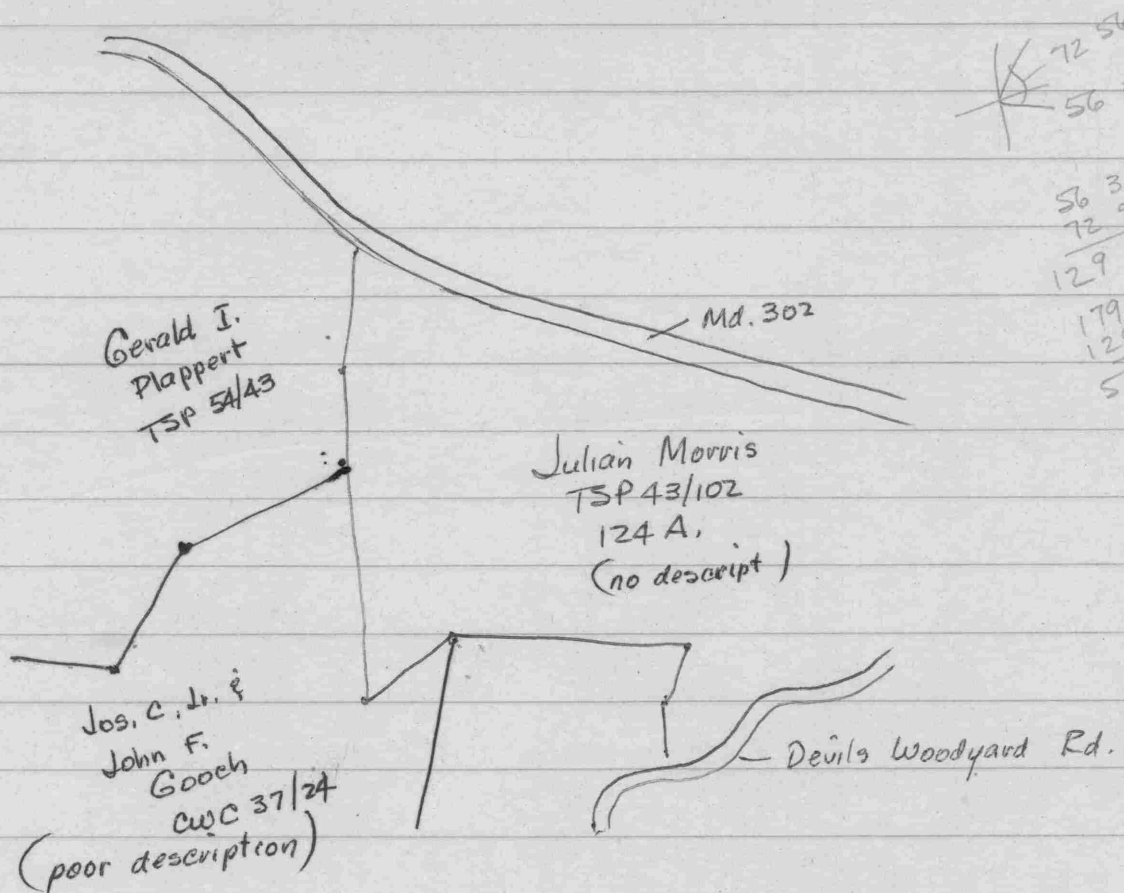 72 56
56
56 3
72
129
179
12
5
Md. 302
Gerald I.
Plappert
TSP 54/43
Julian Morris
TSP 43/102
124 A.
(no descript)
Jos. C. Jr. &
John F.
Gooch
CWC 37/24
(poor description)
Devils Woodyard Rd.